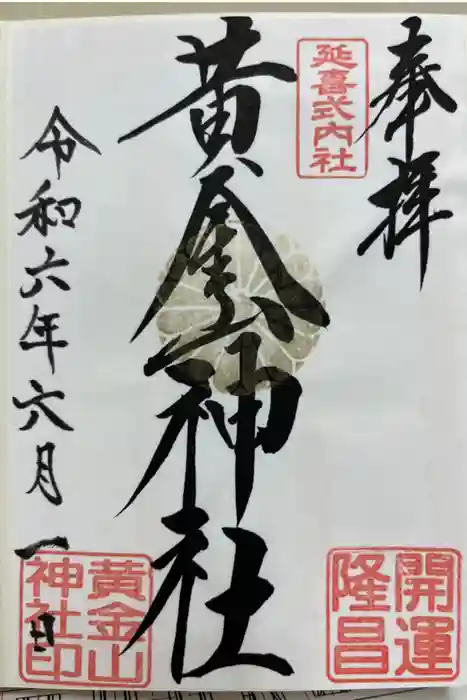 奉拝
延喜式内社
黄金神社
開運
隆昌
令和六年六月一日
黄金山
神社印